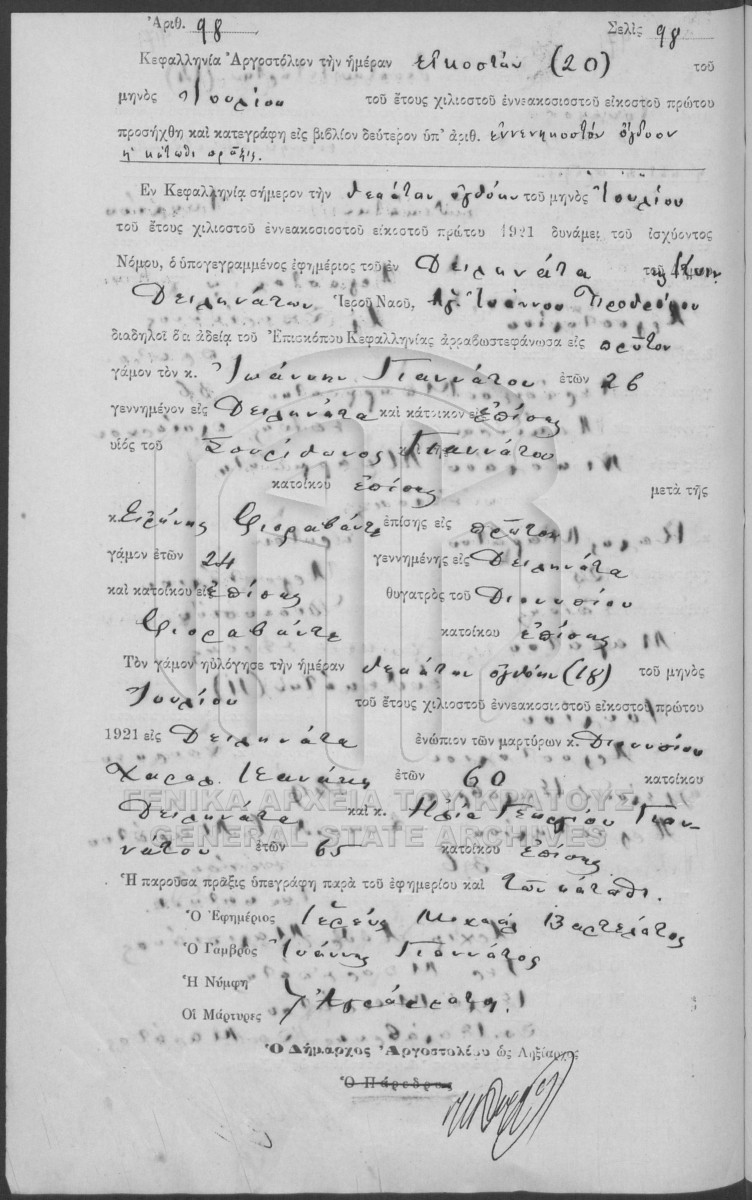 Ἀριθ. 98 Σελὶς 98
Κεφαλληνία Ἀργοστόλιον τὴν ἡμέραν εἰκοστὴν (20) τοῦ
μηνὸς Ἰουλίου τοῦ ἔτους χιλιοστοῦ ἐννεακοσιοστοῦ εἰκοστοῦ πρώτου
προσήχθη καὶ κατεγράφη εἰς βιβλίον δεύτερον ὑπ' ἀριθ. ἐννενηκοστὸν ὄγδοον
ἡ κάτωθι πρᾶξις.
Ἐν Κεφαλληνίᾳ σήμερον τὴν δεκάτην ὀγδόην τοῦ μηνὸς Ἰουλίου
τοῦ ἔτους χιλιοστοῦ ἐννεακοσιοστοῦ εἰκοστοῦ πρώτου 1921 δυνάμει τοῦ ἰσχύοντος
Νόμου, ὁ ὑπογεγραμμένος ἐφημέριος τοῦ ἐν Δειληνάτα
Δειληνάτων Ἱεροῦ Ναοῦ, Ἁγ. Ἰωάννου Προδρόμου
διαδηλοῖ ὅτι ἀδείᾳ τοῦ Ἐπισκόπου Κεφαλληνίας ἀρραβωστεφάνωσα εἰς πρῶτον
γάμον τὸν κ. Ἰωάννην Γιαννάτον ἐτῶν 26
γεννημένον εἰς Δειληνάτα καὶ κάτοικον εἰς ἐπίσης
υἱὸς τοῦ Σπυρίδωνος Γιαννάτου
κατοίκου ἐπίσης μετὰ τῆς
κ. Εἰρήνης Φιοραβάντε ἐπίσης εἰς πρῶτον
γάμον ἐτῶν 24 γεννημένης εἰς Δειληνάτα
καὶ κατοίκου εἰς ἐπίσης θυγατρὸς τοῦ Διονυσίου
Φιοραβάντε κατοίκου ἐπίσης
Τὸν γάμον ηὐλόγησε τὴν ἡμέραν δεκάτην ὀγδόην (18) τοῦ μηνὸς
Ἰουλίου τοῦ ἔτους χιλιοστοῦ ἐννεακοσιοστοῦ εἰκοστοῦ πρώτου
1921 εἰς Δειληνάτα ἐνώπιον τῶν μαρτύρων κ. Διονυσίου
Χαραλ. ἐτῶν 60 κατοίκου
Δειληνάτα καὶ κ. Ἠλία Γεωργίου Γιαν-
νάτου ἐτῶν 65 κατοίκου ἐπίσης
ΓΕΝΙΚΑ ΑΡΧΕΙΑ ΤΟΥ ΚΡΑΤΟΥΣ
GENERAL STATE ARCHIVES
Ἡ παροῦσα πρᾶξις ὑπεγράφη παρὰ τοῦ ἐφημερίου καὶ τῶν κάτωθι.
Ὁ Ἐφημέριος Ἱερεὺς Μιχαὴλ Βαρτελάτος
Ὁ Γαμβρὸς Ἰωάννης Γιαννάτος
Ἡ Νύμφη
Οἱ Μάρτυρες Ἀγράμματοι
Ὁ Δήμαρχος Ἀργοστολίου ὡς Ληξίαρχος
Ὁ Πάρεδρος